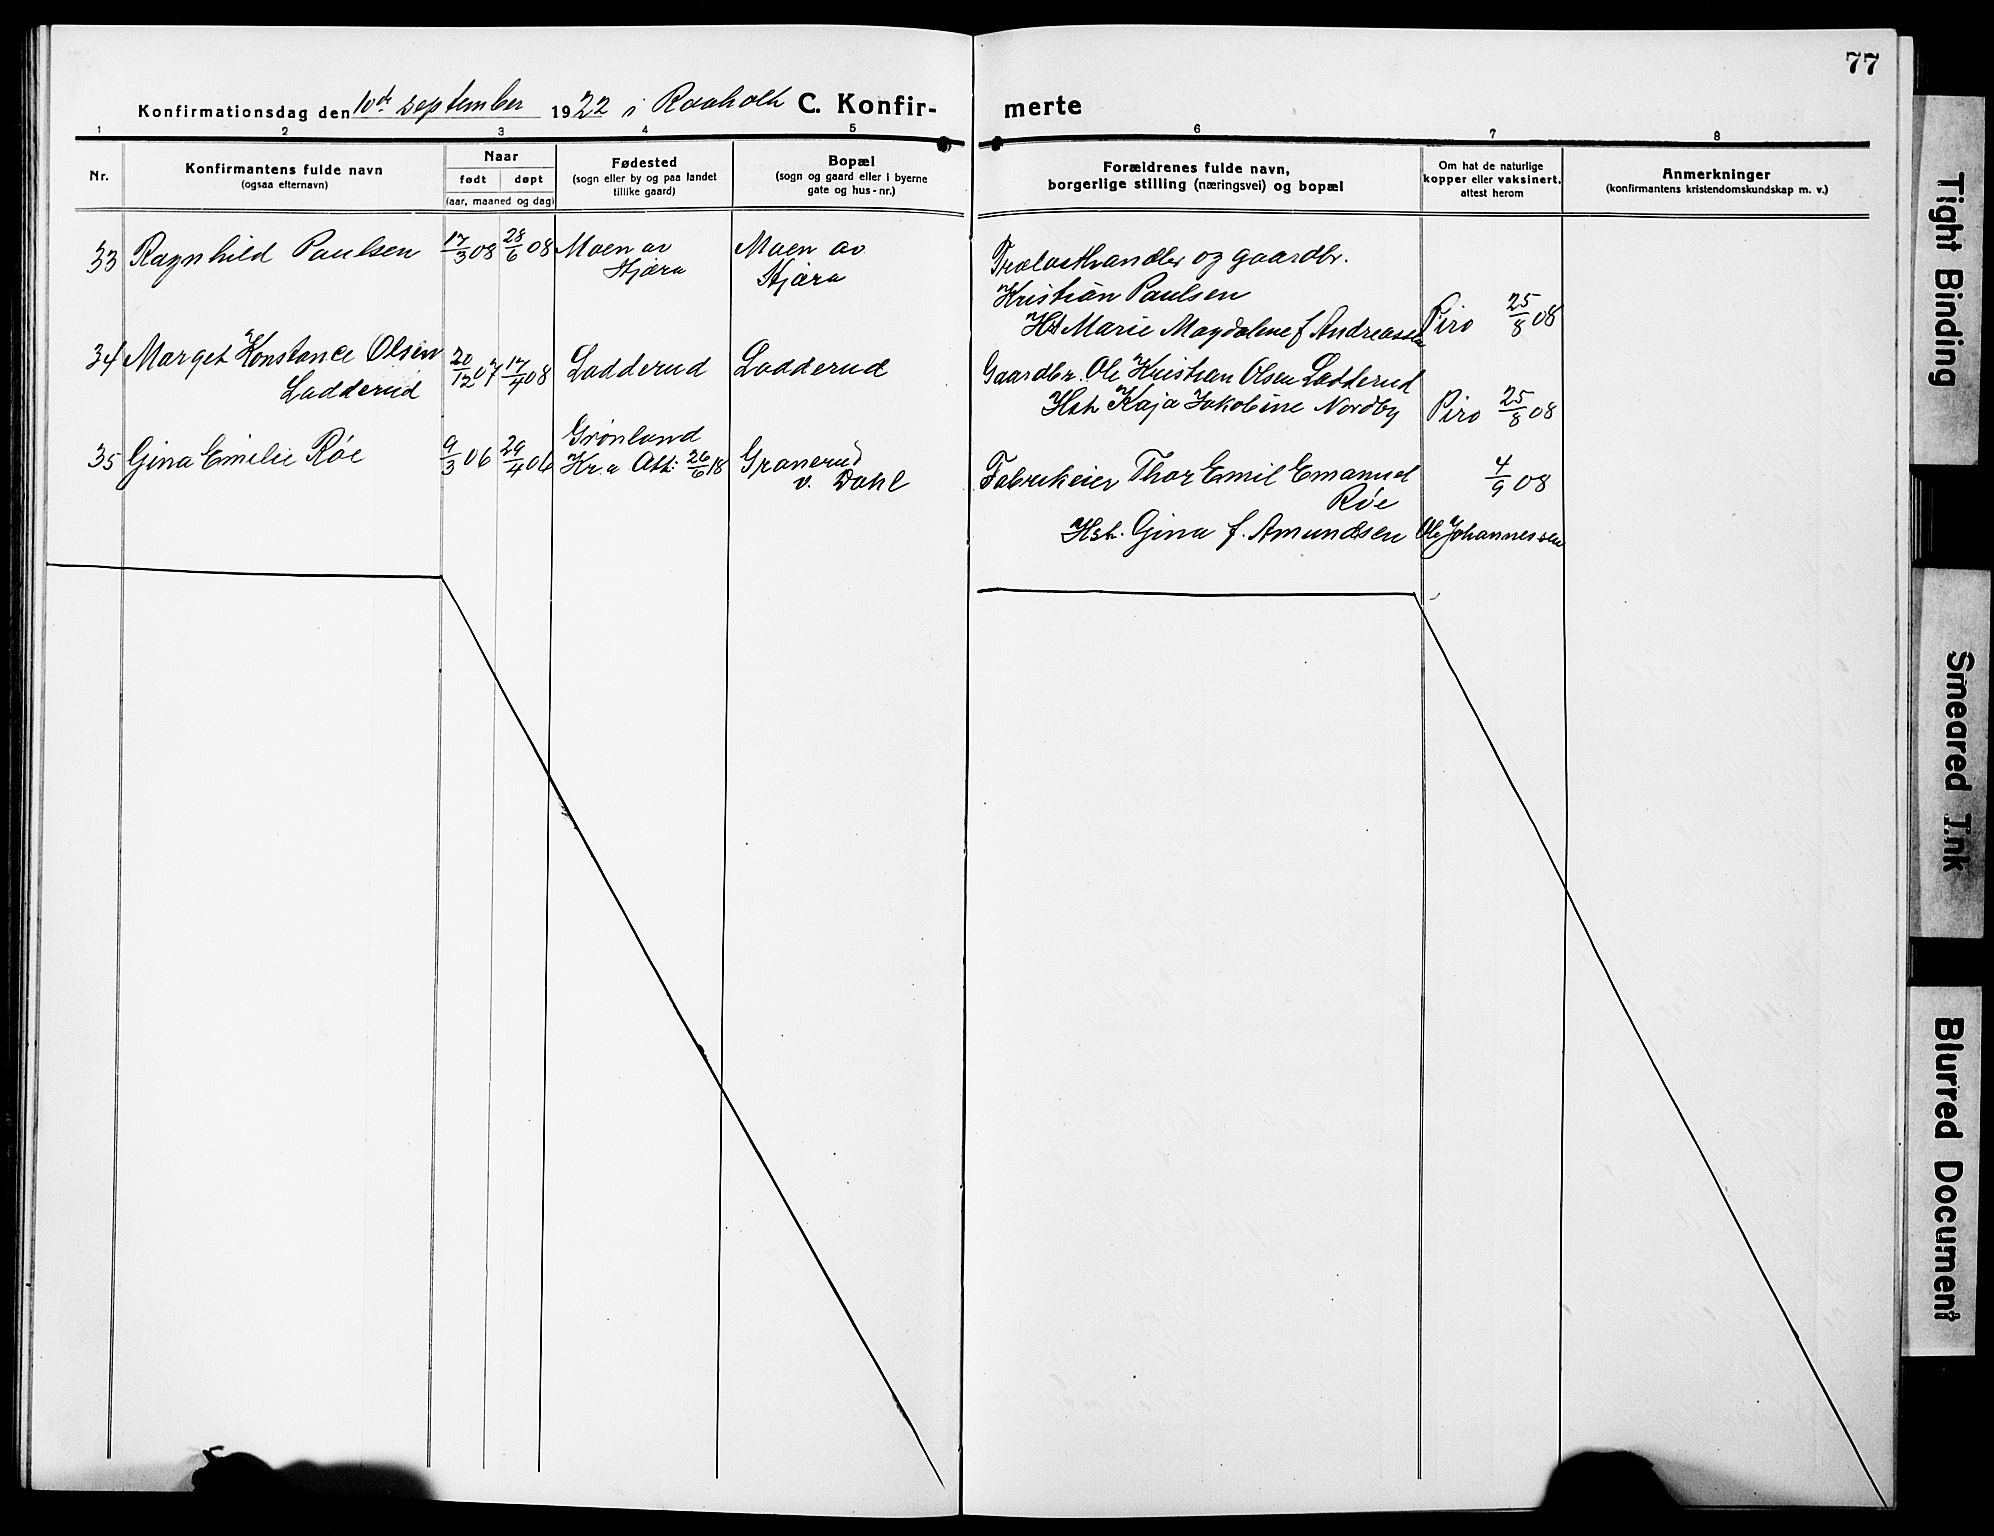 77
Konfirmationsdag den 10de september 1922 i Raaholt C. Konfir-
merte
1 2 3 4 5 6 7 8
Nr.
Konfirmantens fulde navn
(ogsaa efternavn)
Naar
født døpt
(aar, maaned og dag)
Fødested
(sogn eller by og paa landet
tillike gaard)
Bopæl
(sogn og gaard eller i byerne
gate og hus-nr.)
Forældrenes fulde navn,
borgerlige stilling (næringsvei) og bopæl
Om hat de naturlige
kopper eller vaksinert,
attest herom
Anmerkninger
(konfirmantens kristendomskundskap m. v.)
33 Ragnhild Paulsen 17/3 08 28/6 08 Moen av Moen av
Hjæra Hjæra
Trælasthandler og gaardbr.
Kristian Paulsen
Hst Marie Magdalene f Andreassen Piro 25/8 08
34 Marget Konstance Olsen 20/12 07 17/4 08 Ladderud Ladderud
Ladderud
Gaardbr. Ole Kristian Olsen Ladderud
Hst Kaja Jakobine Nordby Piro 25/8 08
35 Gina Emilie Röe 9/3 06 29/4 06 Grönland
Kr.a Att: 26/6 18 Granerud
v. Dahl
Fabrikeier Thor Emil Emanuel 4/9 08
Röe
Hst. Gina f. Amundsen Ole Johannessen
Tight Binding
Smeared Ink
Blurred Document